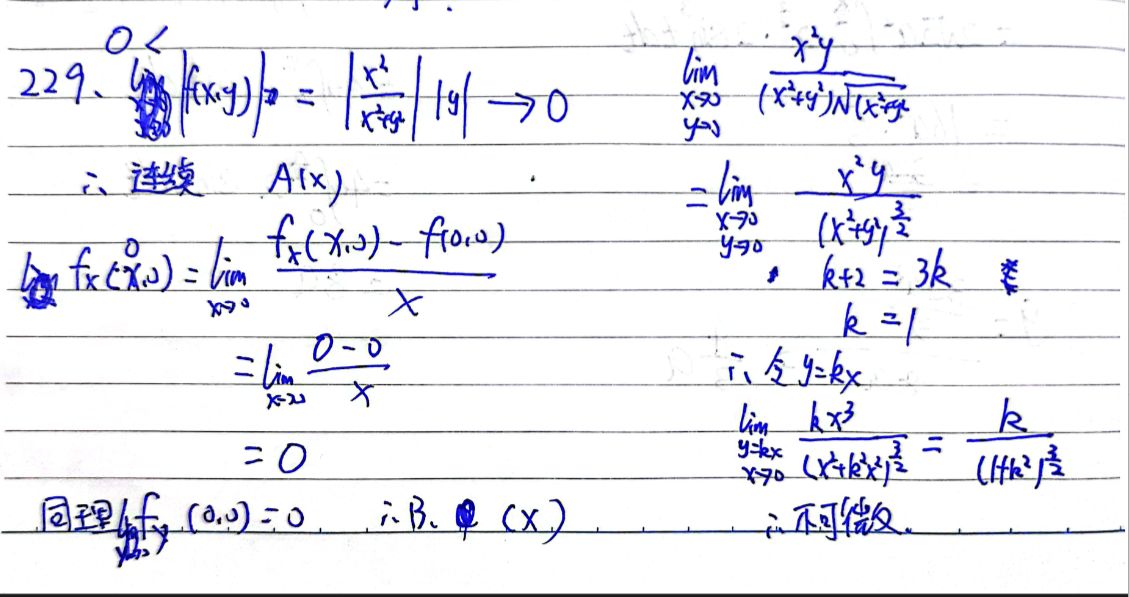 0 <
229、 |f(x,y)| = |x²/(x²+y²)| |y| → 0
∴ 连续 A(x)
f_x(0,0) = lim_{x→0} (f_x(x,0) - f(0,0))/x
= lim_{x→0} (0-0)/x
= 0
同理 f_y (0,0) = 0 ∴ B、 (x)
lim_{x→0 y→0} x²y/((x²+y²)√(x²+y²))
= lim_{x→0 y→0} x²y/(x²+y²)^{3/2}
k+2 = 3k
k = 1
∴ 令 y=kx
lim_{y=kx x→0} kx³/(x²+k²x²)^{3/2} = k/(1+k²)^{3/2}
∴ 不可微